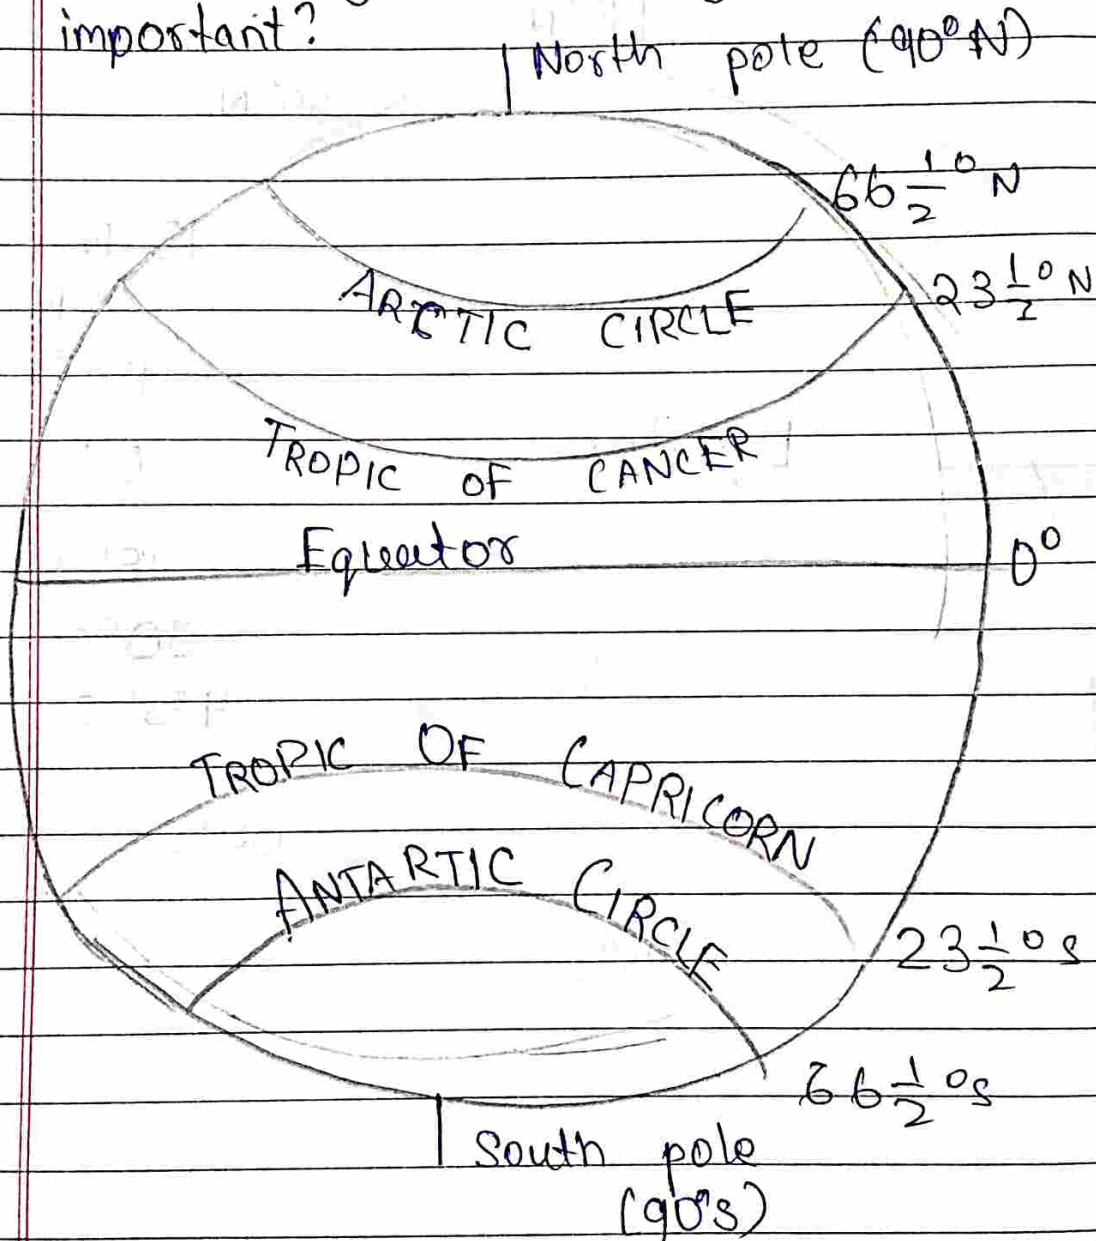 important?
North pole (90°N)
66 1/2 ° N
23 1/2 ° N
ARCTIC CIRCLE
TROPIC OF CANCER
Equator
0°
TROPIC OF CAPRICORN
ANTARTIC CIRCLE
23 1/2 ° S
66 1/2 ° S
South pole
(90°S)